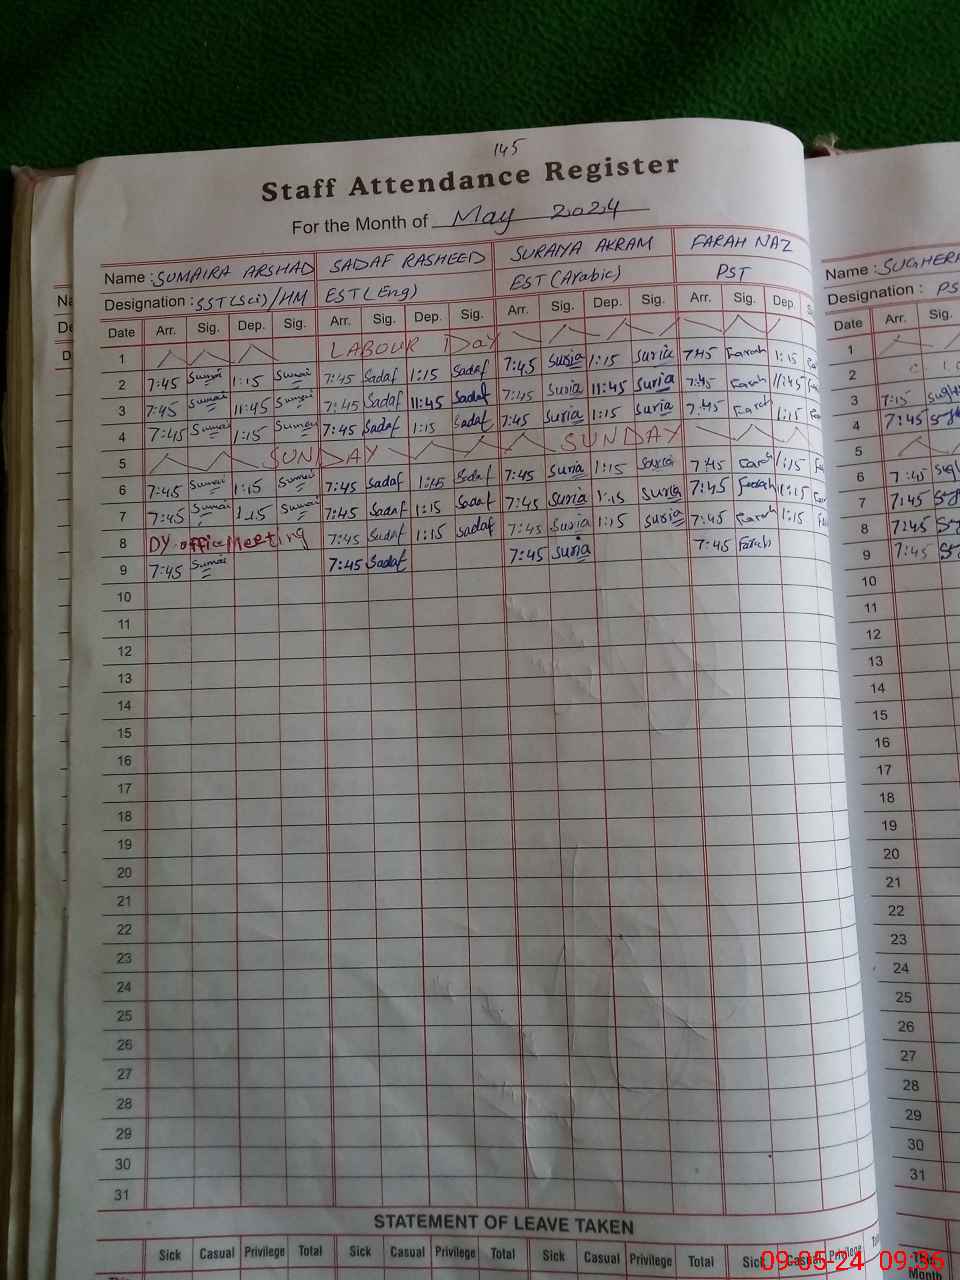 145
Staff Attendance Register
For the Month of May 2024
Name : SUMAIRA ARSHAD SADAF RASHEED SURAIYA AKRAM FARAH NAZ
Designation : SST(Sci)/HM EST(Eng) EST(Arabic) PST
Date Arr. Sig. Dep. Sig. Arr. Sig. Dep. Sig. Arr. Sig. Dep. Sig. Arr. Sig. Dep.
1 LABOUR Day
2 7:45 Sumai 1:15 Sumai 7:45 Sadaf 1:15 Sadaf 7:45 Suria 1:15 Suria 7:45 Farah 1:15
3 7:45 Sumai 11:45 Sumai 7:45 Sadaf 11:45 Sadaf 7:45 Suria 11:45 Suria 7:45 Farah 11:45
4 7:45 Sumai 1:15 Sumai 7:45 Sadaf 1:15 Sadaf 7:45 Suria 1:15 Suria 7:45 Farah 1:15
5 SUNDAY SUNDAY
6 7:45 Sumai 1:15 Sumai 7:45 Sadaf 1:15 Sadaf 7:45 Suria 1:15 Suria 7:45 Farah 1:15
7 7:45 Sumai 1:15 Sumai 7:45 Sadaf 1:15 Sadaf 7:45 Suria 1:15 Suria 7:45 Farah 1:15
8 DY office Meeting 7:45 Sadaf 1:15 Sadaf 7:45 Suria 1:15 Suria 7:45 Farah 1:15
9 7:45 Sumai 7:45 Sadaf 7:45 Suria 7:45 Farah
10
11
12
13
14
15
16
17
18
19
20
21
22
23
24
25
26
27
28
29
30
31
STATEMENT OF LEAVE TAKEN
Sick Casual Privilege Total Sick Casual Privilege Total Sick Casual Privilege Total Sick Casual Privilege
Name :
Designation :
Date Arr. Sig.
1
2
3 7:15
4 7:45
5
6 7:45
7 7:45
8 7:45
9 7:45
10
11
12
13
14
15
16
17
18
19
20
21
22
23
24
25
26
27
28
29
30
31
Month
09-05-24 09:36